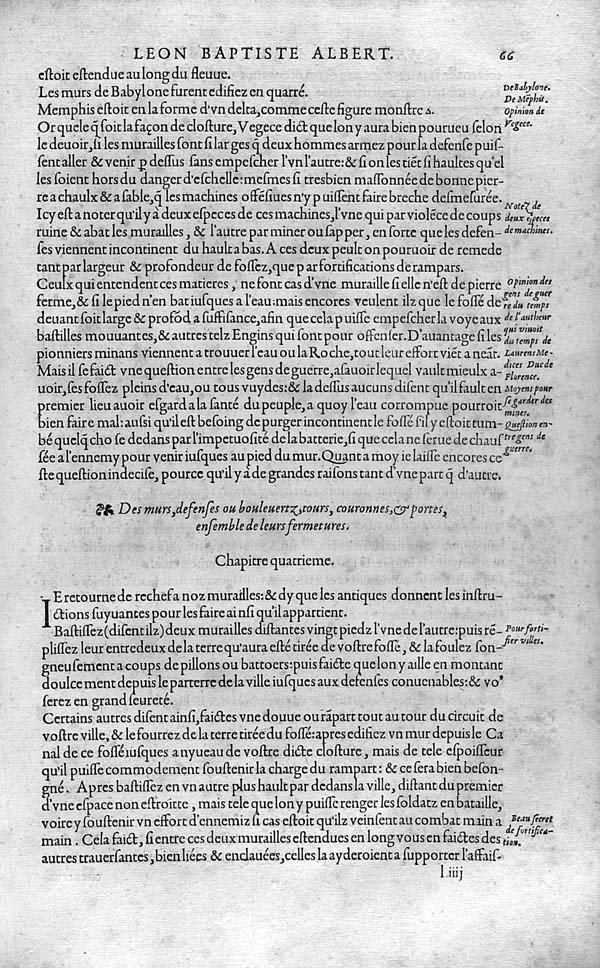 LEON BAPTISTE ALBERT. 66
eſtoit eſtendue au long du fleuue.
Les murs de Babylone furent edifiez en quarré.
De Babylone.
Memphis eſtoit en la forme d'vn delta, comme ceſte figure monſtre ▵.
De Mẽphis.
Or quele q̃ ſoit la façon de cloſture, Vegece dict que lon y aura bien pourueu ſelon
Opinion de
Vegece.
le deuoir, ſi les murailles ſont ſi larges q̃ deux hommes armez pour la defenſe puiſ-
ſent aller & venir ꝑ deſſus ſans empeſcher l'vn l'autre: & ſi on les tiẽt ſi haultes qu'el
les ſoient hors du danger d'eſchelle: meſmes ſi tresbien maſſonnée de bonne pier-
re a chaulx & a ſable, q̃ les machines offẽſiues n'y puiſſent faire breche deſmeſurée.
Icy eſt a noter qu'il y à deux eſpeces de ces machines, l'vne qui par violẽce de coups
Notez de
deux eſpeces
de machines.
ruine & abat les murailles, & l'autre par miner ou ſapper, en ſorte que les defen-
ſes viennent incontinent du hault a bas. A ces deux peult on pouruoir de remede
tant par largeur & profondeur de foſſez, que par fortifications de rampars.
Ceulx qui entendent ces matieres, ne font cas d'vne muraille ſi elle n'eſt de pierre
Opinion des
gens de guer
re du temps
de l'autheur
qui viuoit
du temps de
Laurens Me-
dices Duc de
Florence.
ferme, & ſi le pied n'en bat iuſques a l'eau: mais encores veulent ilz que le foſſé de
deuant ſoit large & profõd a ſuffiſance, afin que cela puiſſe empeſcher la voye aux
baſtilles mouuantes, & autres telz Engins qui ſont pour offenſer. D'auantage ſi les
pionniers minans viennent a trouuer l'eau ou la Roche, tout leur effort viẽt a neãt.
Mais il ſe faict vne queſtion entre les gens de guerre, aſauoir lequel vault mieulx a-
uoir, ſes foſſez pleins d'eau, ou tous vuydes: & la deſſus aucuns diſent qu'il fault en
Moyens pour
ſe garder des
mines.
premier lieu auoir eſgard a la ſanté du peuple, a quoy l'eau corrompue pourroit
bien faire mal: auſsi qu'il eſt beſoing de purger incontinent le foſſé ſ'il y eſtoit tum-
Queſtion en-
tre gens de
guerre.
bé quelq̃ choſe dedans par l'impetuoſité de la batterie, ſi que cela ne ſerue de chauſ
ſée a l'ennemy pour venir iuſques au pied du mur. Quant a moy ie laiſſe encores ce
ſte queſtion indeciſe, pource qu'il y à de grandes raiſons tant d'vne part q̃ d'autre.
Des murs, defenſes ou bouleuertz, tours, couronnes, & portes,
enſemble de leurs fermetures.
Chapitre quatrieme.
IE retourne de rechef a noz murailles: & dy que les antiques donnent les inſtru-
ctions ſuyuantes pour les faire ainſi qu'il appartient.
Baſtiſſez (diſent ilz) deux murailles diſtantes vingt piedz l'vne de l'autre: puis rẽ-
Pour forti-
fier villes.
pliſſez leur entredeux de la terre qu'aura eſté tirée de voſtre foſſe, & la foulez ſon-
gneuſement a coups de pillons ou battoers: puis faicte que lon y aille en montant
doulcement depuis le parterre de la ville iuſques aux defenſes conuenables: & vo⁹
ſerez en grand ſeureté.
Certains autres diſent ainſi, faictes vne douue ou rãpart tout au tour du circuit de
voſtre ville, & le fourrez de la terre tirée du foſſé: apres edifiez vn mur depuis le Ca
nal de ce foſſé iuſques a nyueau de voſtre dicte cloſture, mais de tele eſpoiſſeur
qu'il puiſſe commodement ſouſtenir la charge du rampart: & ce ſera bien beſon-
gné. Apres baſtiſſez en vn autre plus hault par dedans la ville, diſtant du premier
d'vne eſpace non eſtroitte, mais tele que lon y puiſſe renger les ſoldatz en bataille,
voire y ſouſtenir vn effort d'ennemiz ſi cas eſtoit qu'ilz veinſent au combat main a
Beau ſecret
de fortifica-
tion.
main. Cela faict, ſi entre ces deux murailles eſtendues en long vous en faictes des
autres trauerſantes, bien liées & enclauées, celles la ayderoient a ſupporter l'affaiſ-
l iiij